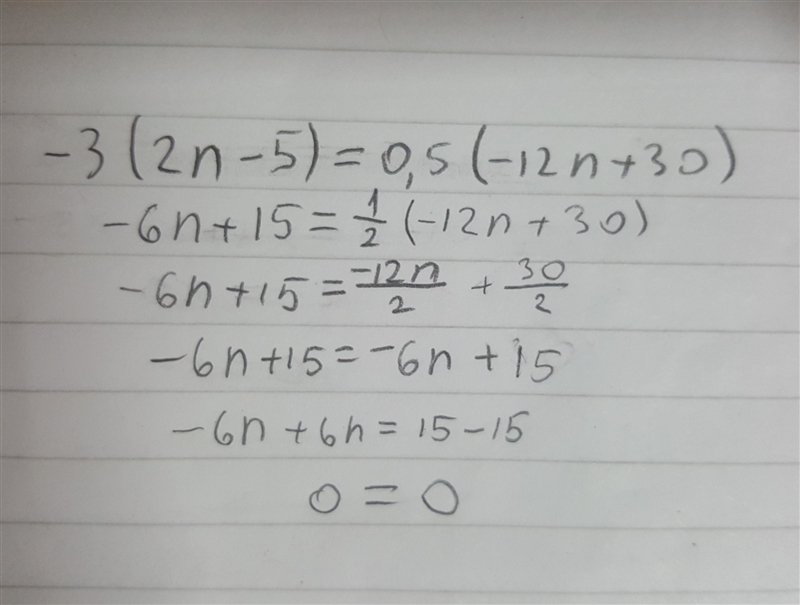 -3(2n-5)=0,5(-12n+30)
-6n+15=½(-12n+30)
-6n+15=-12n/2 + 30/2
-6n+15=-6n+15
-6n+6n=15-15
0=0